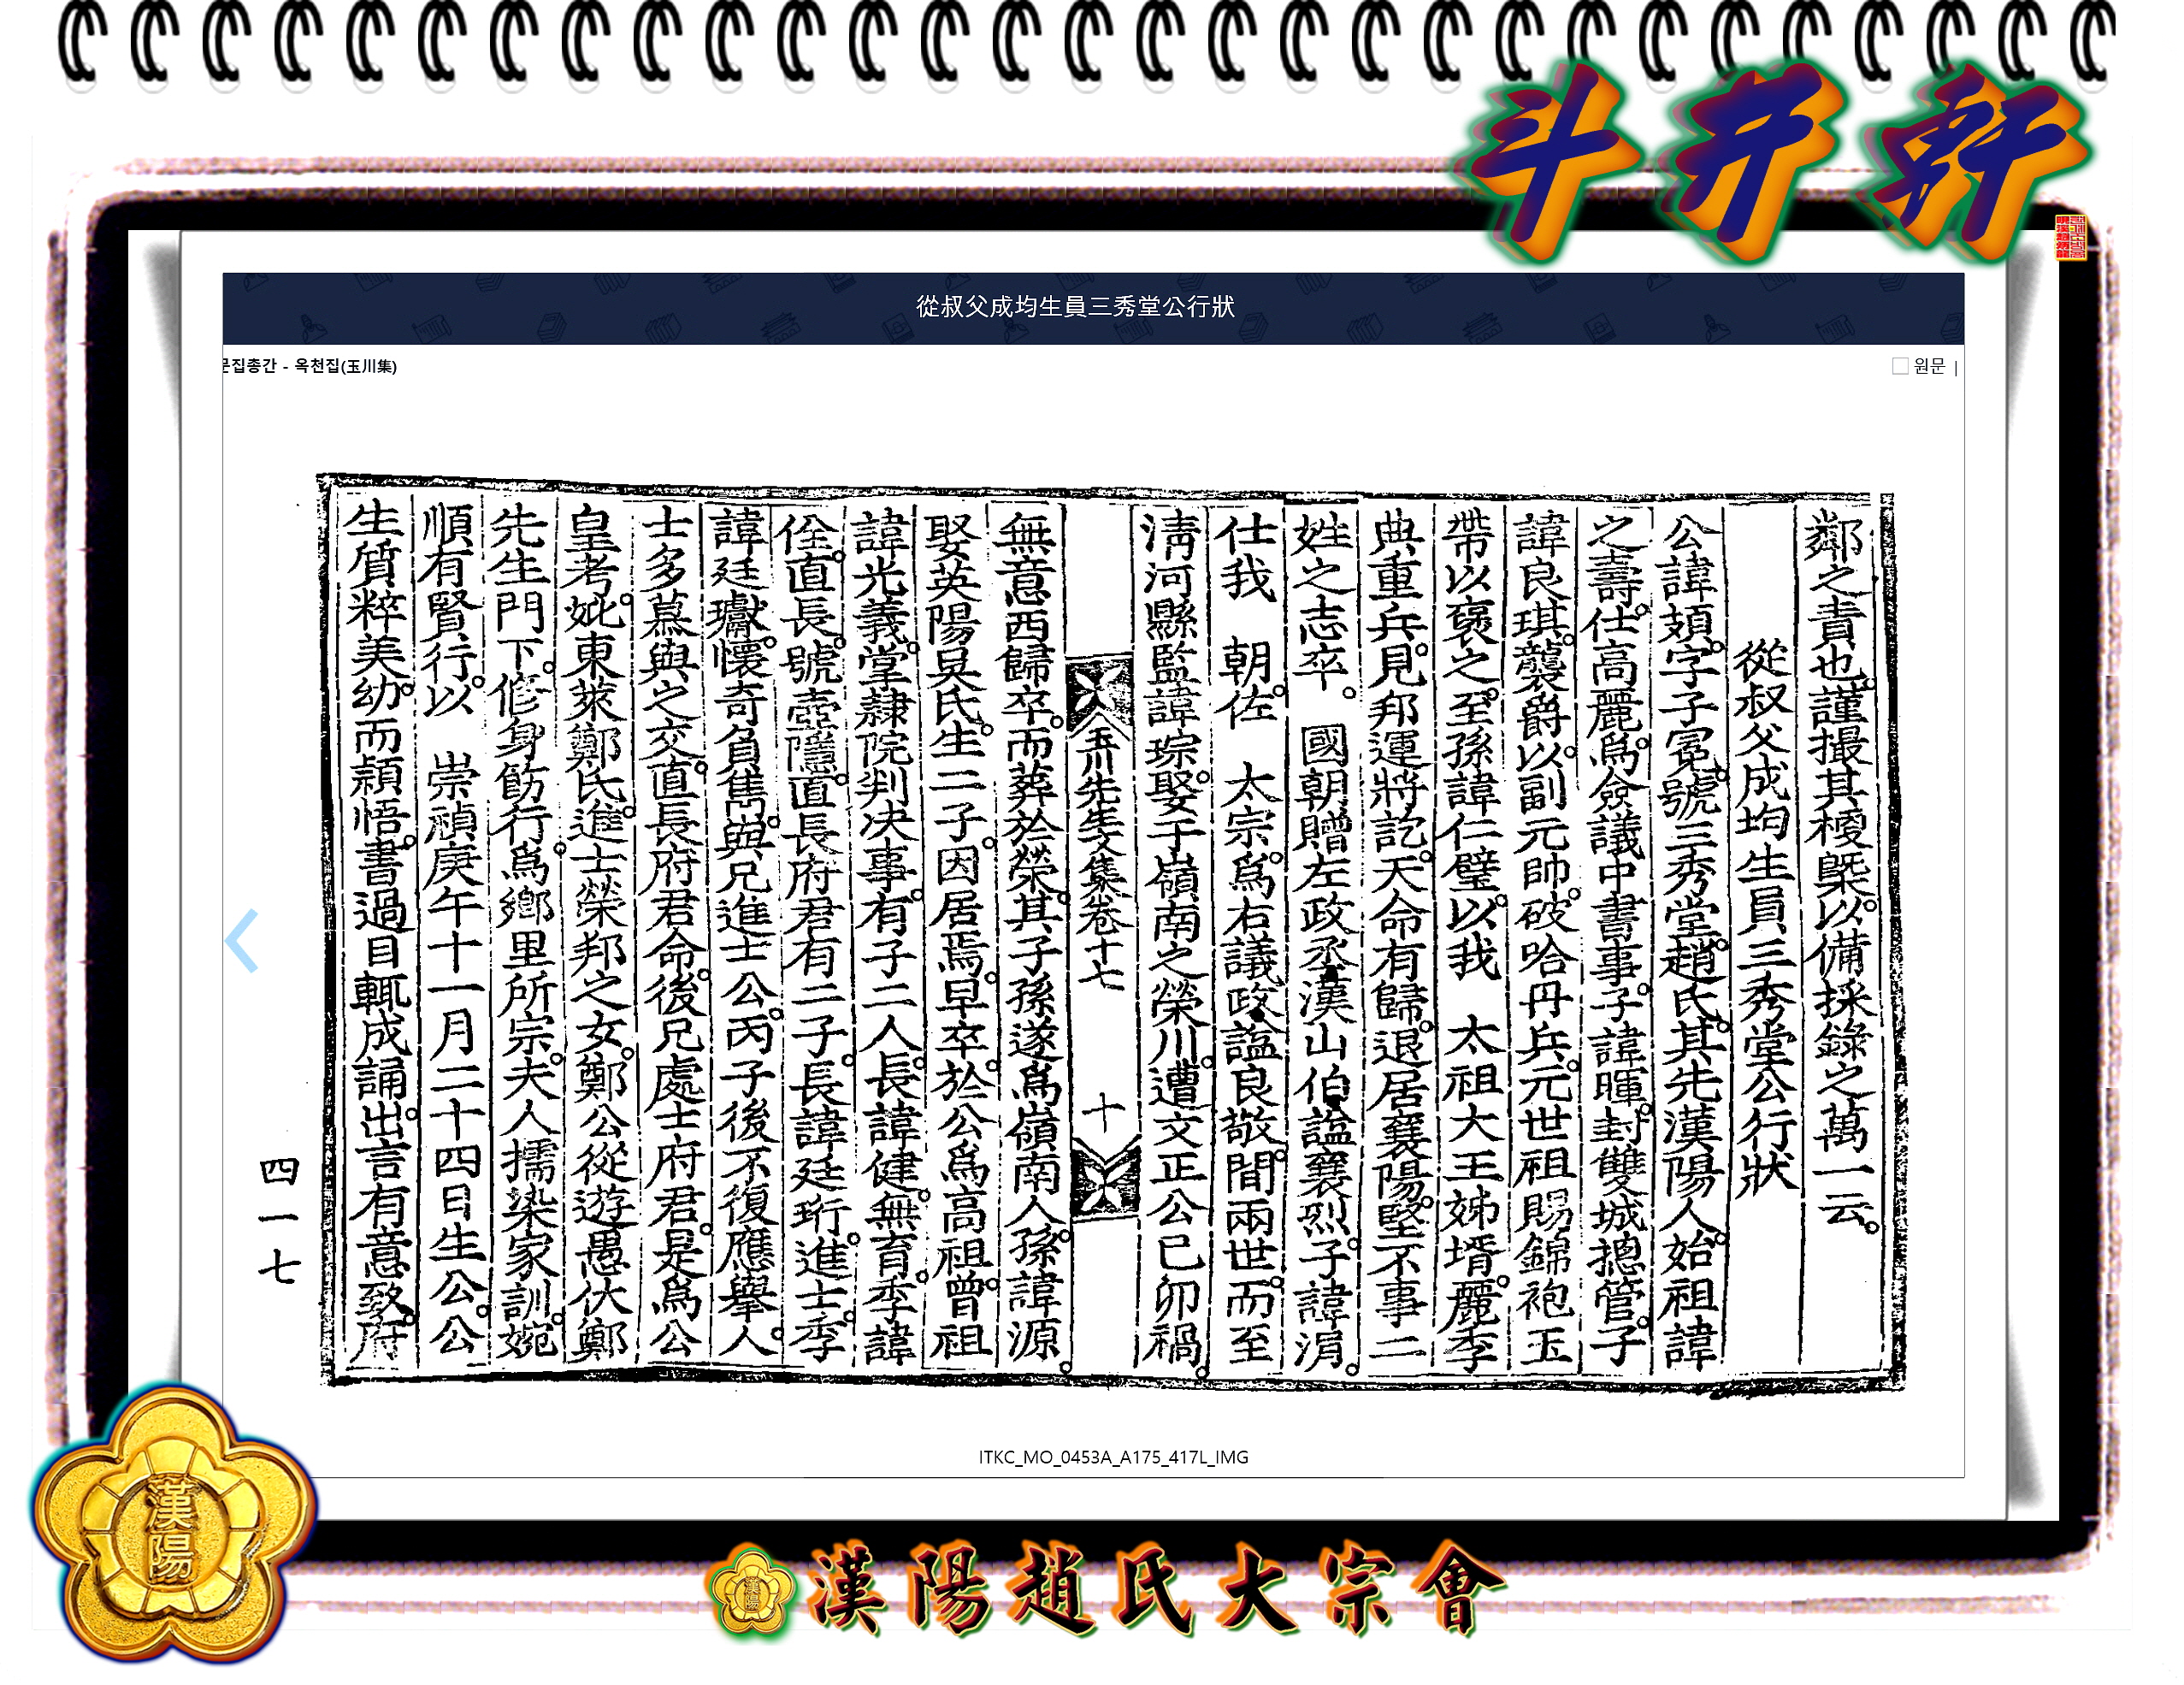 斗井軒
從叔父成均生員三秀堂公行狀
문집총간 - 옥천집(玉川集)
원문 |
鄰之責也謹撮其㮣以備採錄之萬一云
從叔父成均生員三秀堂公行狀
公諱頍字子冕號三秀堂趙氏其先漢陽人始祖諱
之壽仕高麗爲僉議中書事子諱暉封雙城摠管子
諱良琪襲爵以副元帥破哈丹兵元世祖賜錦袍玉
帶以褒之至孫諱仁璧以我 太祖大王姊壻麗季
典重兵見邦運將訖天命有歸退居襄陽堅不事二
姓之志卒 國朝贈左政丞漢山伯諡襄烈子諱涓
仕我 朝佐 太宗爲右議政諡良敬間兩世而至
淸河縣監諱琮娶于嶺南之榮川遭文正公己卯禍
玉川先生文集卷十七 十
無意西歸卒而葬於榮其子孫遂爲嶺南人孫諱源
娶英陽吳氏生二子因居焉早卒於公爲高祖曾祖
諱光義掌隷院判决事有子二人長諱健無育季諱
佺直長號壺隱直長府君有二子長諱廷珩進士季
諱廷瓛懷奇負雋與兄進士公丙子後不復應擧人
士多慕與之交直長府君命後兄處士府君是爲公
皇考妣東萊鄭氏進士榮邦之女鄭公從遊愚伏鄭
先生門下修身飭行爲鄉里所宗夫人擩染家訓婉
順有賢行以 崇禎庚午十一月二十四日生公公
生質粹美幼而穎悟書過目輒成誦出言有意致府
四一七
ITKC_MO_0453A_A175_417L_IMG
漢陽
漢陽趙氏大宗會